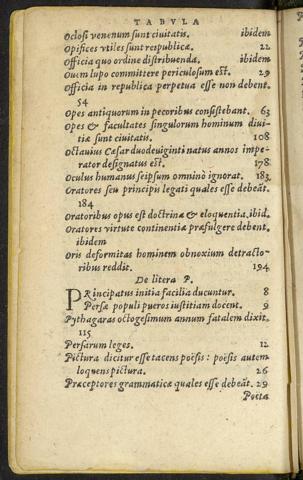 TABVLA
Oclosi venenum sunt ciuitatis. ibidem
Opifices vtiles sunt respublicæ. 22
Officia quo ordine distribuenda. ibidem
Ouem lupo committere periculosum est. 29
Officia in republica perpetua esse non debent.
54
Opes antiquorum in pecoribus consistebant. 63
Opes & facultates singulorum hominum diui-
tiæ sunt ciuitatis. 108
Octauius Cæsar duodeuiginti natus annos impe-
rator designatus est. 178
Oculus humanus seipsum omninò ignorat. 183.
Oratores seu principis legati quales esse debeãt.
184
Oratoribus opus est doctrina & eloquentia. ibid.
Oratores virtute continentiæ præfulgere debent.
ibidem
Oris deformitas hominem obnoxium detracto-
ribus reddit. 194
De litera P.
PRincipatus initia facilia ducuntur. 8
Persæ populi pueros iustitiam docent. 9
Pythagoras octogesimum annum fatalem dixit.
115
Persarum leges. 12
Pictura dicitur esse tacens poësis: poësis autem
loquens pictura. 26
Præceptores grammaticæ quales esse debeãt. 29
Poeta